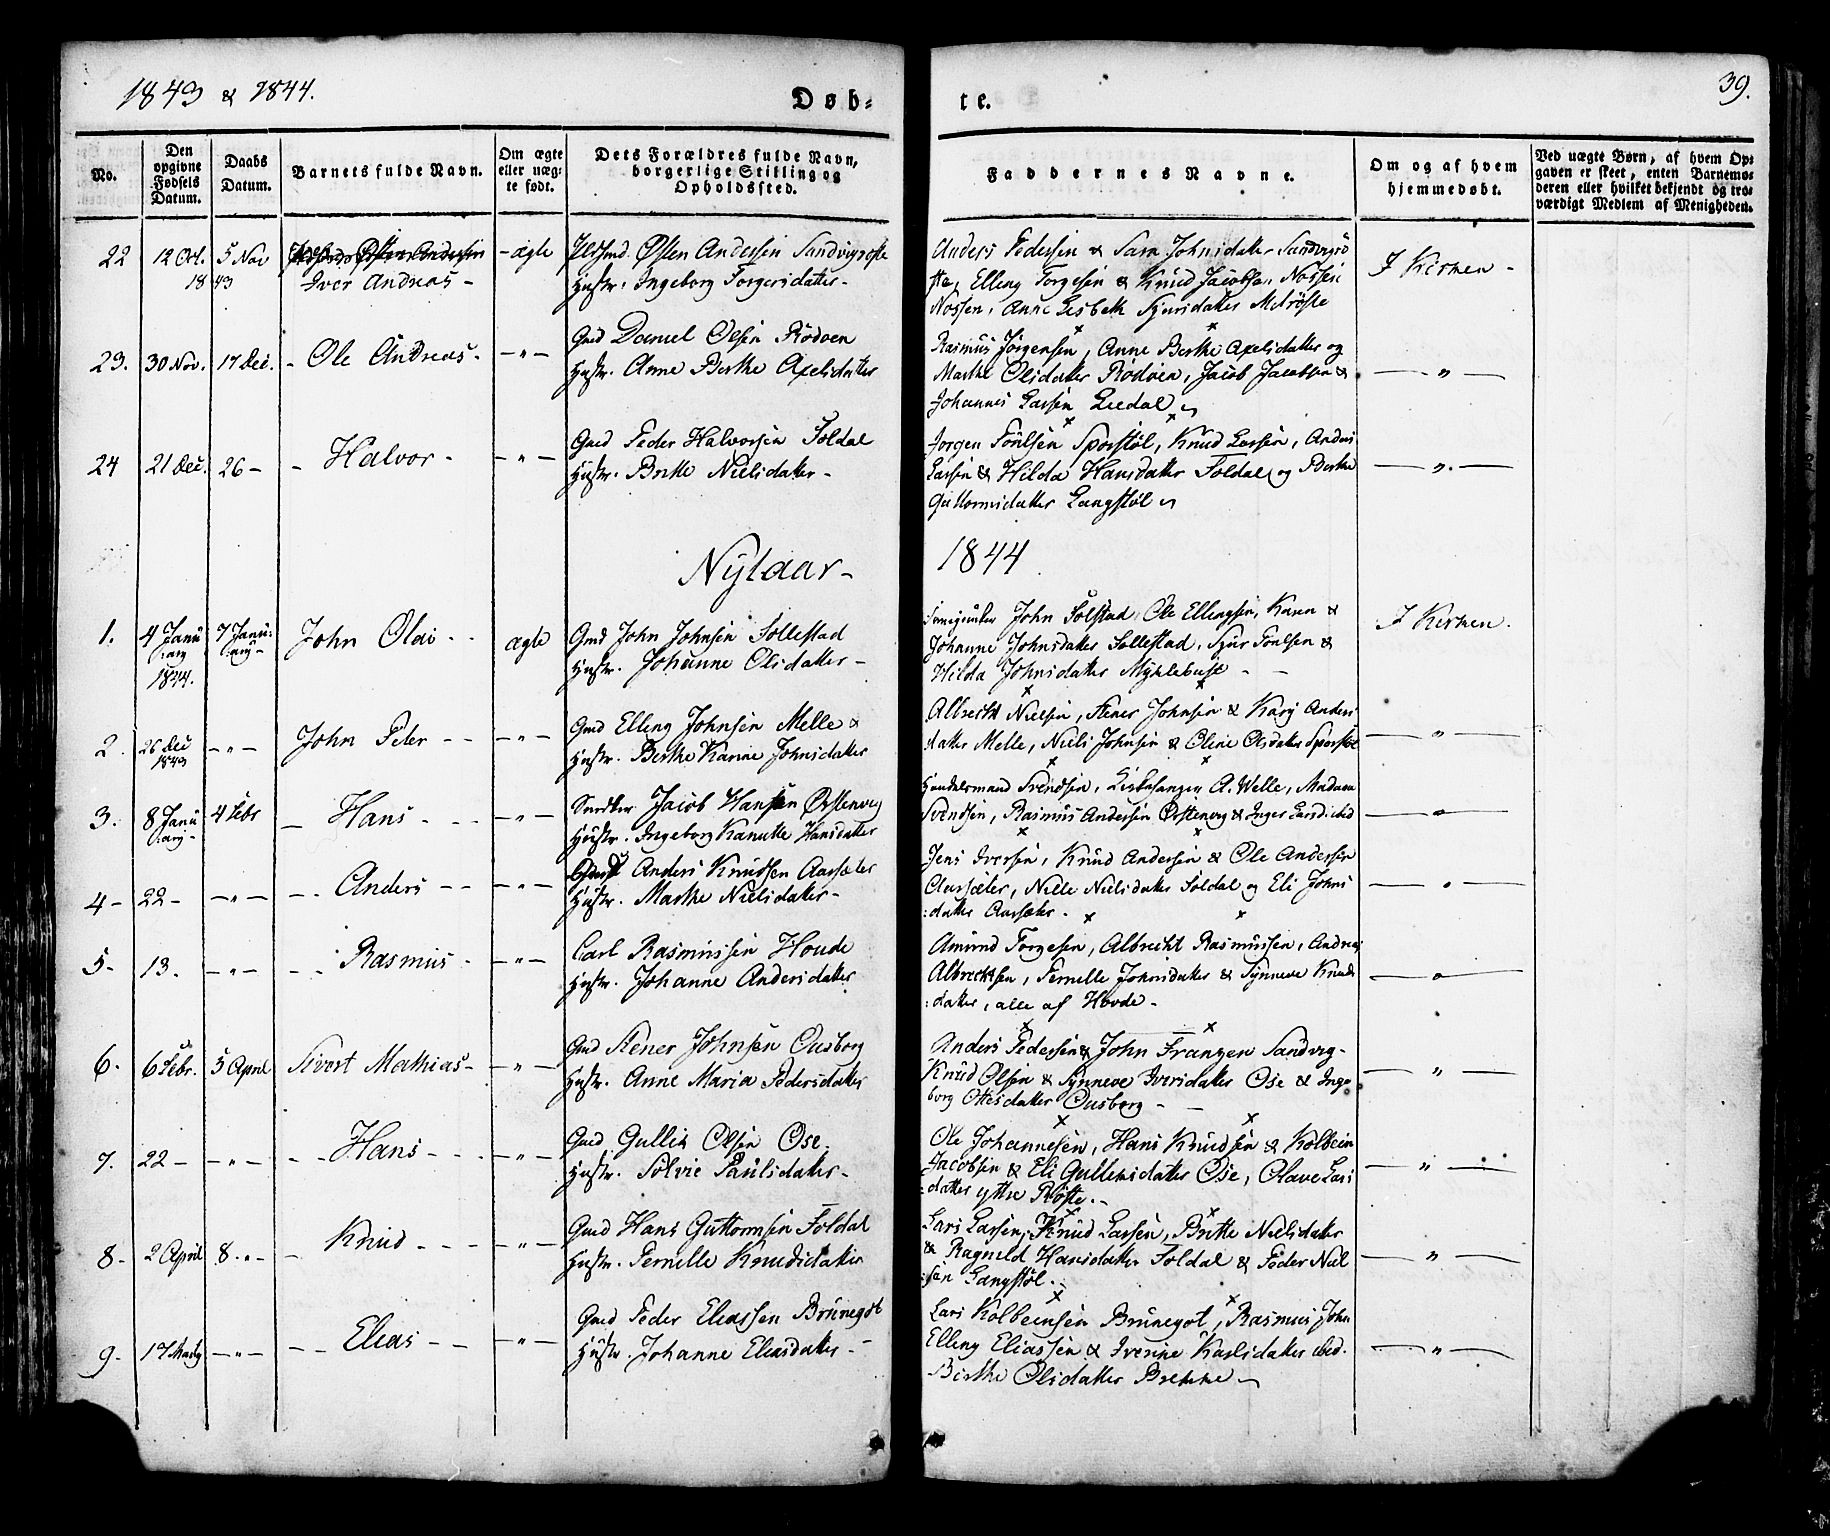 1843 & 1844.
Døb-
te.
39.
No.
Den opgivne Fødsels Datum.
Daabs Datum.
Barnets fulde Navn.
Om ægte eller uæg-te født.
Dets Forældres fulde Navn, borgerlige Stilling og Opholdssted.
Faddernes Navne.
Om og af hvem hjemmedøbt.
Ved uægte Børn, af hvem Op-gaven er skeet, enten Barnemo-deren eller hvilket bekjendt og tro-værdigt Medlem af Menigheden.
22 12 Oct. 1843 5 Nov
Iver Andreas -
- ægte
Østen Andersen Sandvigrøste
Hustr. Ingeborg Torgersdatter -
Anders Pedersen & Sara Johnsdatter Sandvigrø
ste, Elling Torgesen & Knud Jacobsen Nossen
Nossen, Anne Lisbeth Sjursdatter Melrøste
I Kirken -
23. 30 Nov. 17 Dec. - Ole Andreas - - " -
Gmd Daniel Olsen Rødven
Hustr. Anne Berthe Axelsdatter
Rasmus Jørgensen, Anne Berthe Axelsdatter og
Marthe Olsdatter Rødven, Jacob Jacobsen &
Johannes Larsen Liedal
- " -
24 21 Dec. 26 - - Halvor - - " -
Gmd Peder Halvorsen Soldal
Hustr. Britte Nielsdatter -
Jørgen Poulsen Sporstøl, Knud Larsen, Anders
Larsen & Hilda Hansdatter Soldal og Berthe
Guttormsdatter Langstøl
- " -
Nytaar -
1844
1. 4 Januarij 1844. 7 Januarij - John Olai - - ægte
Gmd John Johnsen Sollestad
Hustr. Johanne Olsdatter -
John Solstad, Ole Ellingsen, Karen &
Johanne Johnsdatter Sollestad, Sjur Poulsen &
Hilda Johnsdatter Myklebust - -
I Kirken.
2. 26 Dec 1843 - " - John Peter - - - " -
Gmd Elling Johnsen Melle &
Hustr. Berthe Karine Johnsdatter
Albrecht Nielsen, Stener Johnsen & Karj Anders
datter Melle, Niels Johnsen & Oline Olsdatter Sporstøl
- " -
3. 8 Januarij - 4 Febr - Hans - - - - " -
Jacob Hansen Ørstenvig
Hustr. Ingeborg Kanutte Hansdatter
Handelsmand Svendsen, A. Welle, Madam
Svendsen, Rasmus Andersen Ørstenvig & Inger Larsd. ibid
- " -
4 - 22 - - " - - - Anders - - - " -
Gmd Anders Knudsen Aarsæter
Hustr. Marthe Nielsdatter -
Jens Iversen, Knud Andersen & Ole Andersen
Aarsæter, Nille Nielsdatter Soldal og Eli Johns
:datter Aarsæter -
- " -
5 - 13. - " - - - Rasmus - - " -
Carl Rasmussen Hovde
Hustr. Johanne Andersdatter
Amund Torgesen, Albrecht Rasmussen, Andreas
Albrechtsen, Pernille Johnsdatter & Synneve Knuds
:datter, alle af Hovde -
- " -
6. 6 Febr. 5 April Sivert Mathias - - " -
Gmd Stener Johnsen Ousborg
Hustr. Anne Maria Pedersdatter
Anders Pedersen & John Frantzen Sandvig -
Knud Olsen & Synneve Iversdatter Ose & Inge
borg Ottesdatter Ousborg - -
- " -
7. 22 - - " - - - Hans - - - - " -
Gmd Gullik Olsen Ose -
Hustr. Solvie Paulsdatter -
Ole Johannesen, Hans Knudsen & Kolbein
Jacobsen & Eli Gulleksdatter Ose, Olave Lars
:datter yttre Røste. -
- " -
8 - 2 April 8 - " - - Knud - - - - " -
Gmd Hans Guttormsen Soldal
Hustr. Pernille Knudsdatter
Lars Larsen, Knud Larsen, Britte Nielsdatter
& Ragnild Hansdatter Soldal & Peder Niel
:sen Langstøl. -
- " -
9 - 17 Marty - " - - - Elias - - - " -
Gmd Peder Eliassen Brunegot
Hustr. Johanne Eliasdatter -
Lars Kolbeinsen Brunegot, Rasmus John
Elling Eliassen & Iverine Karlsdatter ibid.
Birthe Olsdatter Brekke
- " -